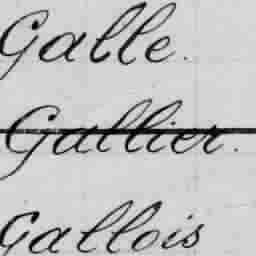 Galle.
Gallier.
Gallois